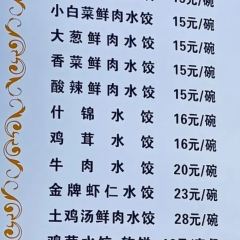 小白菜鲜肉水饺 15元/碗
大葱鲜肉水饺 15元/碗
香菜鲜肉水饺 15元/碗
酸辣鲜肉水饺 15元/碗
什锦水饺 16元/碗
鸡茸水饺 16元/碗
牛肉水饺 20元/碗
金牌虾仁水饺 23元/碗
土鸡汤鲜肉水饺 28元/碗